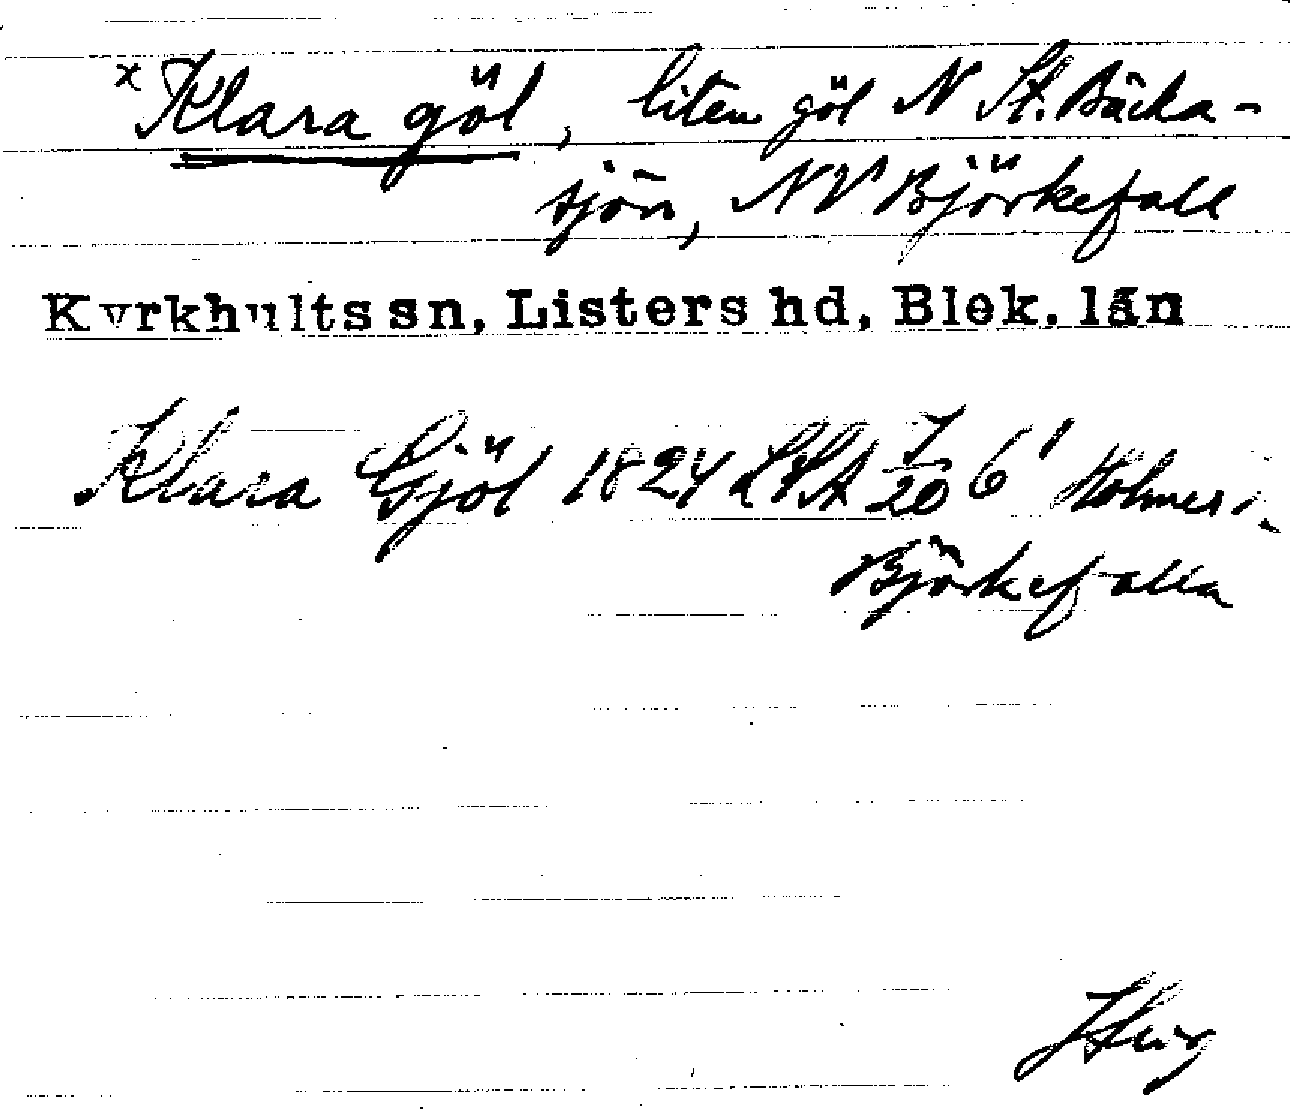 x Klara göl, liten göl N St. Bäcka-
sjön, NV Björkefall
Kyrkhults sn, Listers hd, Blek. län
Klara Gjöl 1824 LSA 7/20 6' Holmeri.
Björkefalla